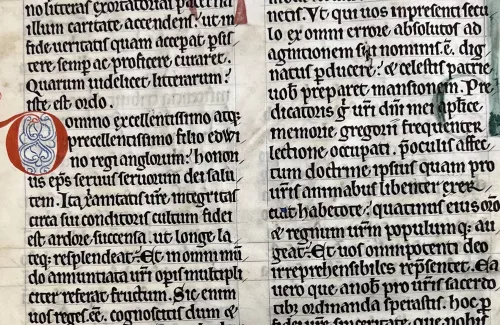 no litteras exortatorias paterna
illum caritate accendens. ut in
fide ueritatis quam accepat psis
tere semp ac proficere curaret.
Quarum uidelicet litterarum:
iste est ordo.
Domino excellentissimo atq;
precellentissimo filio edwi
no regi anglorum: honori
us eps seruus seruorum dei salu
tem. Ita xpianitatis ure integritas
circa sui conditoris cultum fidei
est ardore succensa. ut longe la
teq; resplendeat. Et in omni mun
do annuntiata uri opis multipli
citer referat fructum. Sic enim
uos reges eē. cognoscitis dum &
nectis. Ut qui uos in presenti secu
lo ex omni errore absolutos ad
agnitionem sui nominis ē. dig
natus pducere: & celestis patrie
uob preparet mansionem. Pre
dicatoris g uri dni mei aplice
memorie gregorii frequenter
lectione occupati. poculis affec
tum doctrine ipsius quam pro
uris animabus libenter exer
cuit habetote: quatinus eius oro
& regnum urm populumq; au
geat. Et uos omnipotenti deo
irreprehensibiles repsentet. Ea
uero que a nob pro uris sacerdo
tib; ordinanda sperastis. hoc p
fidei ure sinceritate que nobis